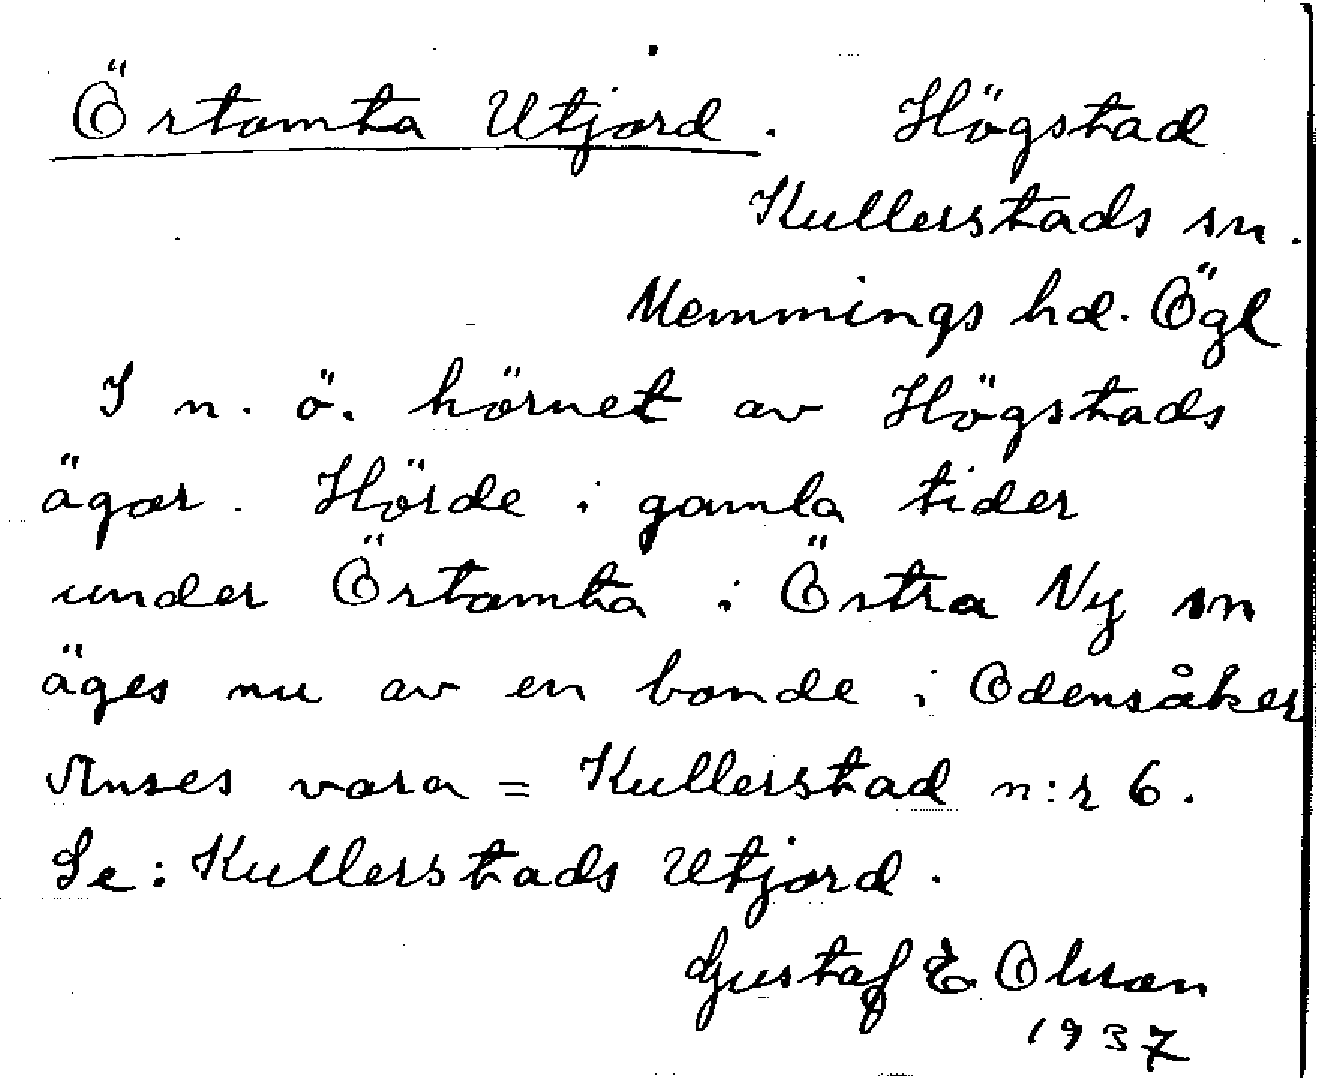 Örtomta Utjord. Högstad
Kullerstads sn.
Memmings hd. Ögl
I n. ö. hörnet av Högstads
ägor. Hörde i gamla tider
under Örtomta i Östra Ny sn
äges nu av en bonde i Odensåker
Anses vara = Kullerstad n:r 6.
Se: Kullerstads Utjord.
Gustaf E. Olsson
1937